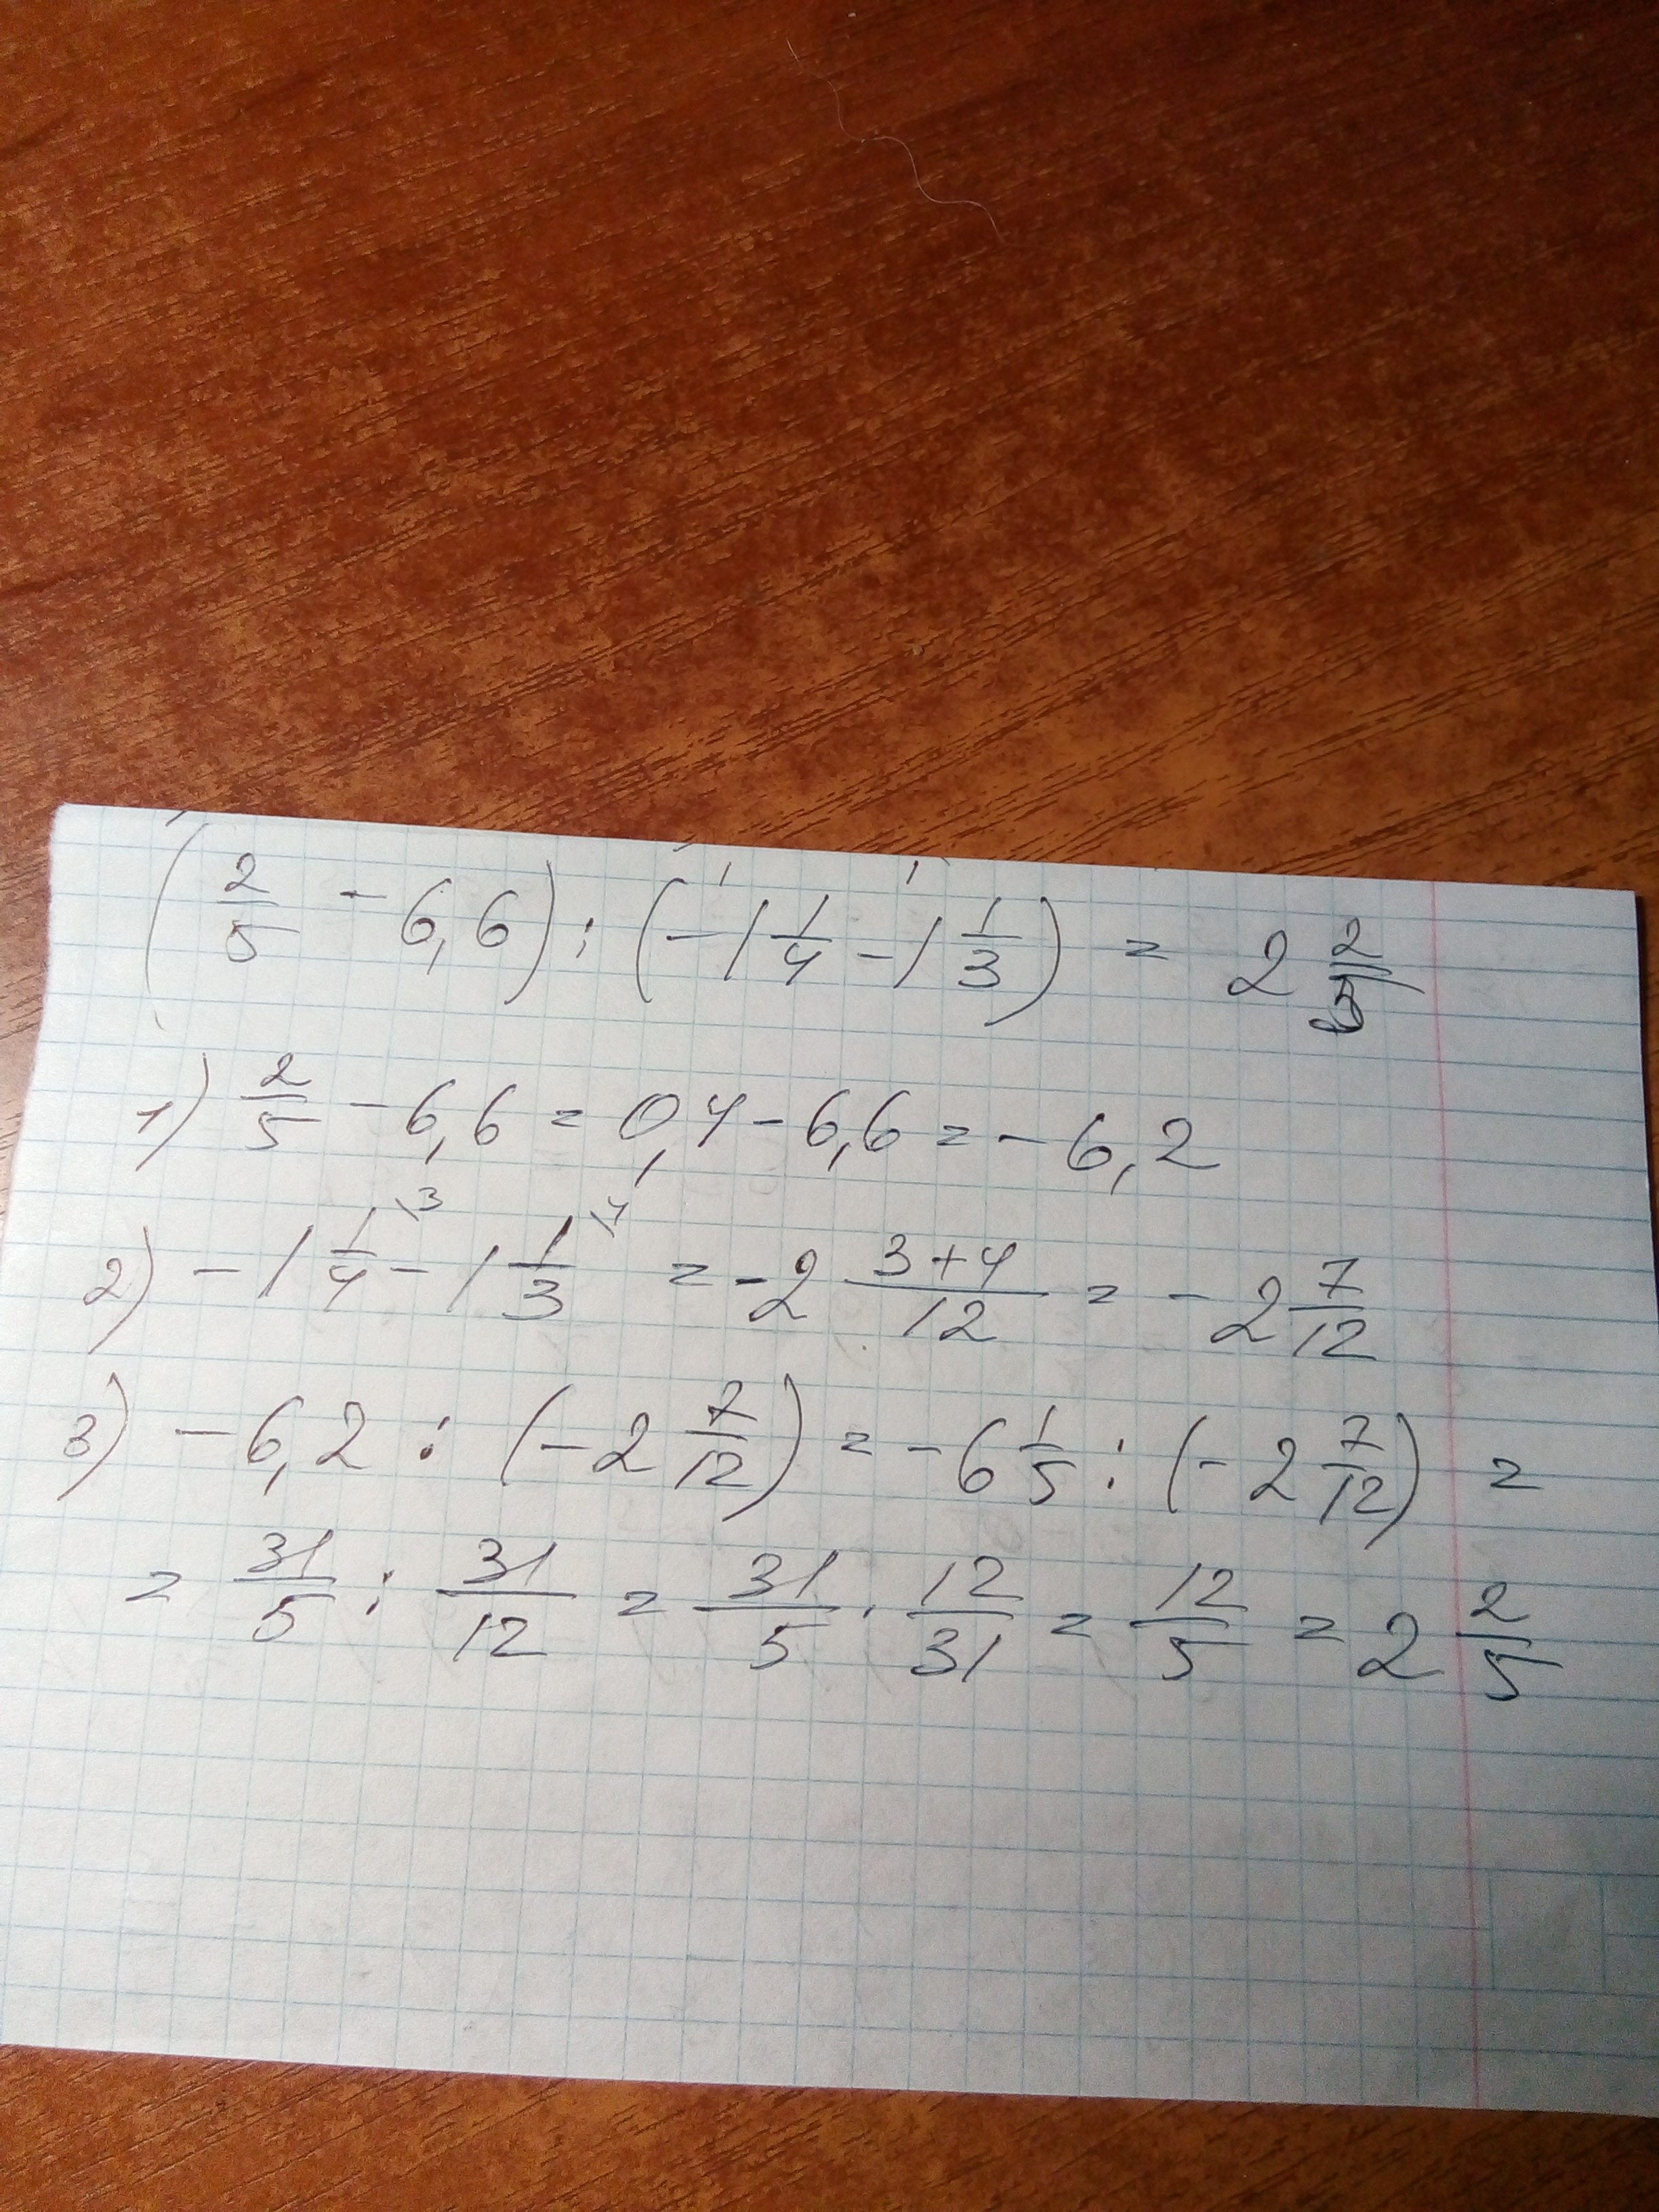 (2/5 - 6,6) : (-1 1/4 - 1 1/3) = 2 2/5
1) 2/5 - 6,6 = 0,4 - 6,6 = - 6,2
2) - 1 1/4 \3 - 1 1/3 \4 = - 2 3+4/12 = - 2 7/12
3) - 6,2 : (- 2 7/12) = - 6 1/5 : (- 2 7/12) =
= 31/5 : 31/12 = 31/5 · 12/31 = 12/5 = 2 2/5